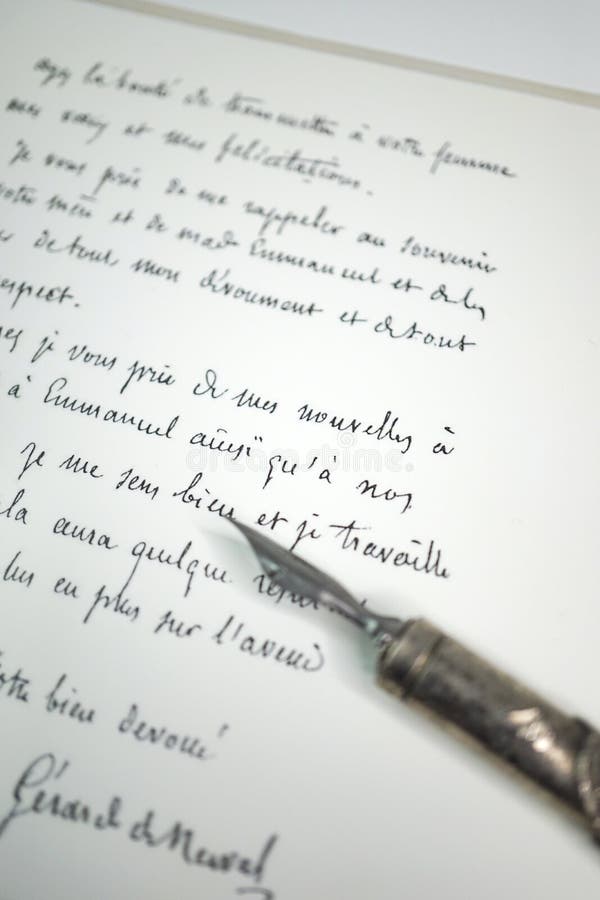 ayez la bonté de transmettre à votre femme
mes vœux et mes félicitations.
Je vous prie de me rappeler au souvenir
votre mère et de mad Emmanuel et de les
de tout mon dévoument et de tout
espect.
je vous prie de mes nouvelles à
à Emmanuel ainsi qu'à nos
je me sens bien et je travaille
la aura quelque
plus en plus sur l'avenir
otre bien dévoué
Gérard de Nerval
dreamstime